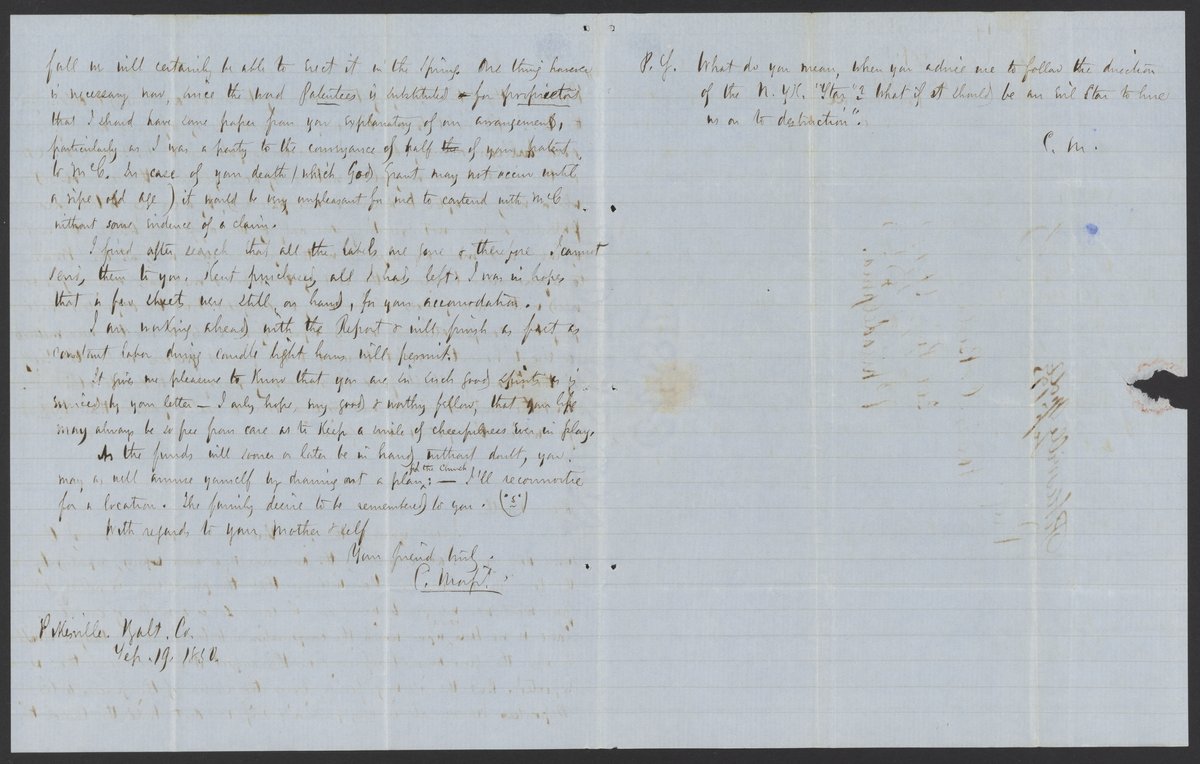 fall we will certainly be able to erect it in the Spring. One thing however
is necessary now, since the word Patentees is substituted for proprietors
that I should have some paper from you explanatory of our arrangement,
particularly as I was a party to the conveyance of half the of your patent
to McC. In case of your death (which God grant may not occur until
a ripe old age) it would be very unpleasant for me to contend with McC
without some evidence of a claim.
I find after search that all the labels are gone & therefore I cannot
send them to you. purchased all I had left. I was in hopes
that a few sheets were still on hand, for your accomodation.
I am working ahead with the Report & will finish as fast as
constant labor during candle light hours will permit.
It gives me pleasure to know that you are in such good spirits as
by your letter — I only hope, my good & worthy fellow, that your life
may always be so free from care as to keep a smile of cheerfulness ever in play.
As the funds will sooner or later be in hand, without doubt, you
may as well amuse yourself by drawing out a plan; — I'll reconnoitre
for the Church
for a location. The family desire to be remembered to you.
With regards to your mother & self
Your friend truly
C.
Balt. Co.
Sep. 19. 1850
P. S. What do you mean, when you advise me to follow the direction
of the N. Yk. "Star"? What if it should be an Evil Star to lure
us on to destruction".
C. M.